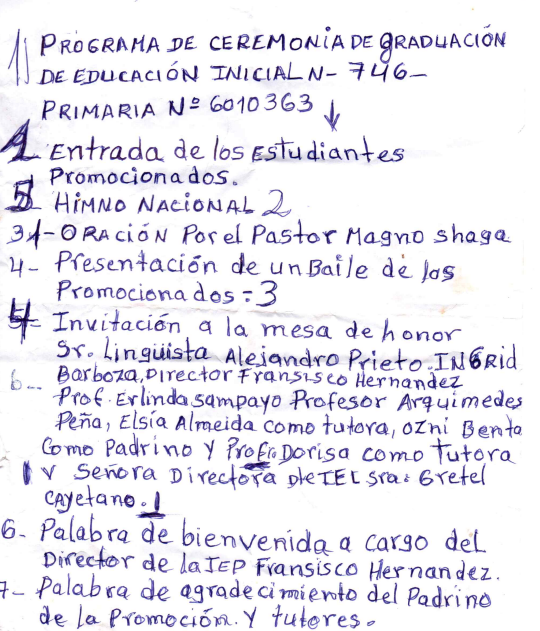 1) PROGRAMA DE CEREMONIA DE GRADUACIÓN
DE EDUCACIÓN INICIAL N- 746-
PRIMARIA Nº 6010363 ↓
1 Entrada de los Estudiantes
Promocionados.
HIMNO NACIONAL 2
3 - ORACIÓN Por el Pastor Magno shaga
4- Presentación de un Baile de los
Promocionados = 3
Invitación a la mesa de honor
Sr. Lingüista Alejandro Prieto. INGRid
6-- Barboza, Director Fransisco Hernandez
Prof. Erlinda sampayo Profesor Arquimedes
Peña, Elsia Almeida como tutora, OZni Benta
Como Padrino Y Profa Dorisa como Tutora
Y Señora Directora de IEI sra: Gretel
CAyetano. 1
6- Palabra de bienvenida a cargo del
Director de la IEP Fransisco Hernandez.
7- Palabra de agradecimiento del Padrino
de La Promoción. Y tutores.